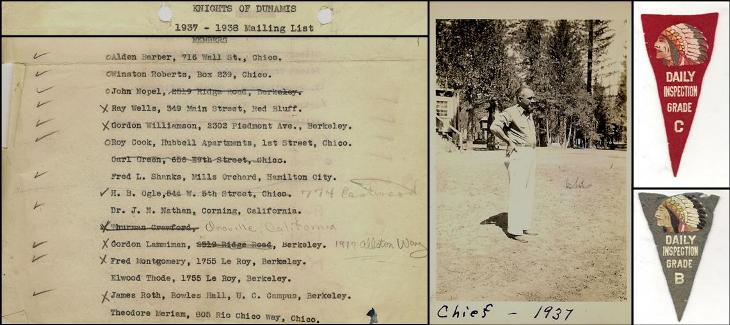 KNIGHTS OF DUNAMIS
1937 - 1938 Mailing List
MEMBERS
Alden Barber, 716 Wall St., Chico.
Winston Roberts, Box 239, Chico.
John Nopel, 2519 Ridge Road, Berkeley.
Ray Wells, 349 Main Street, Red Bluff.
Gordon Williamson, 2302 Piedmont Ave., Berkeley.
Roy Cook, Hubbell Apartments, 1st Street, Chico.
Carl Green, 656 E9th Street, Chico.
Fred L. Shanks, Mills Orchard, Hamilton City.
H. B. Ogle, 544 W. 5th Street, Chico. 774 Eastwood
Dr. J. N. Nathan, Corning, California.
Thurman Crawford, Oroville, California
Gordon Lammiman, 2519 Ridge Road, Berkeley. 1977 Allston Way
Fred Montgomery, 1755 Le Roy, Berkeley.
Elwood Thode, 1755 Le Roy, Berkeley.
James Roth, Bowles Hall, U. C. Campus, Berkeley.
Theodore Meriam, 605 Rio Chico Way, Chico.
Chief - 1937
DAILY
INSPECTION
GRADE
C
DAILY
INSPECTION
GRADE
B